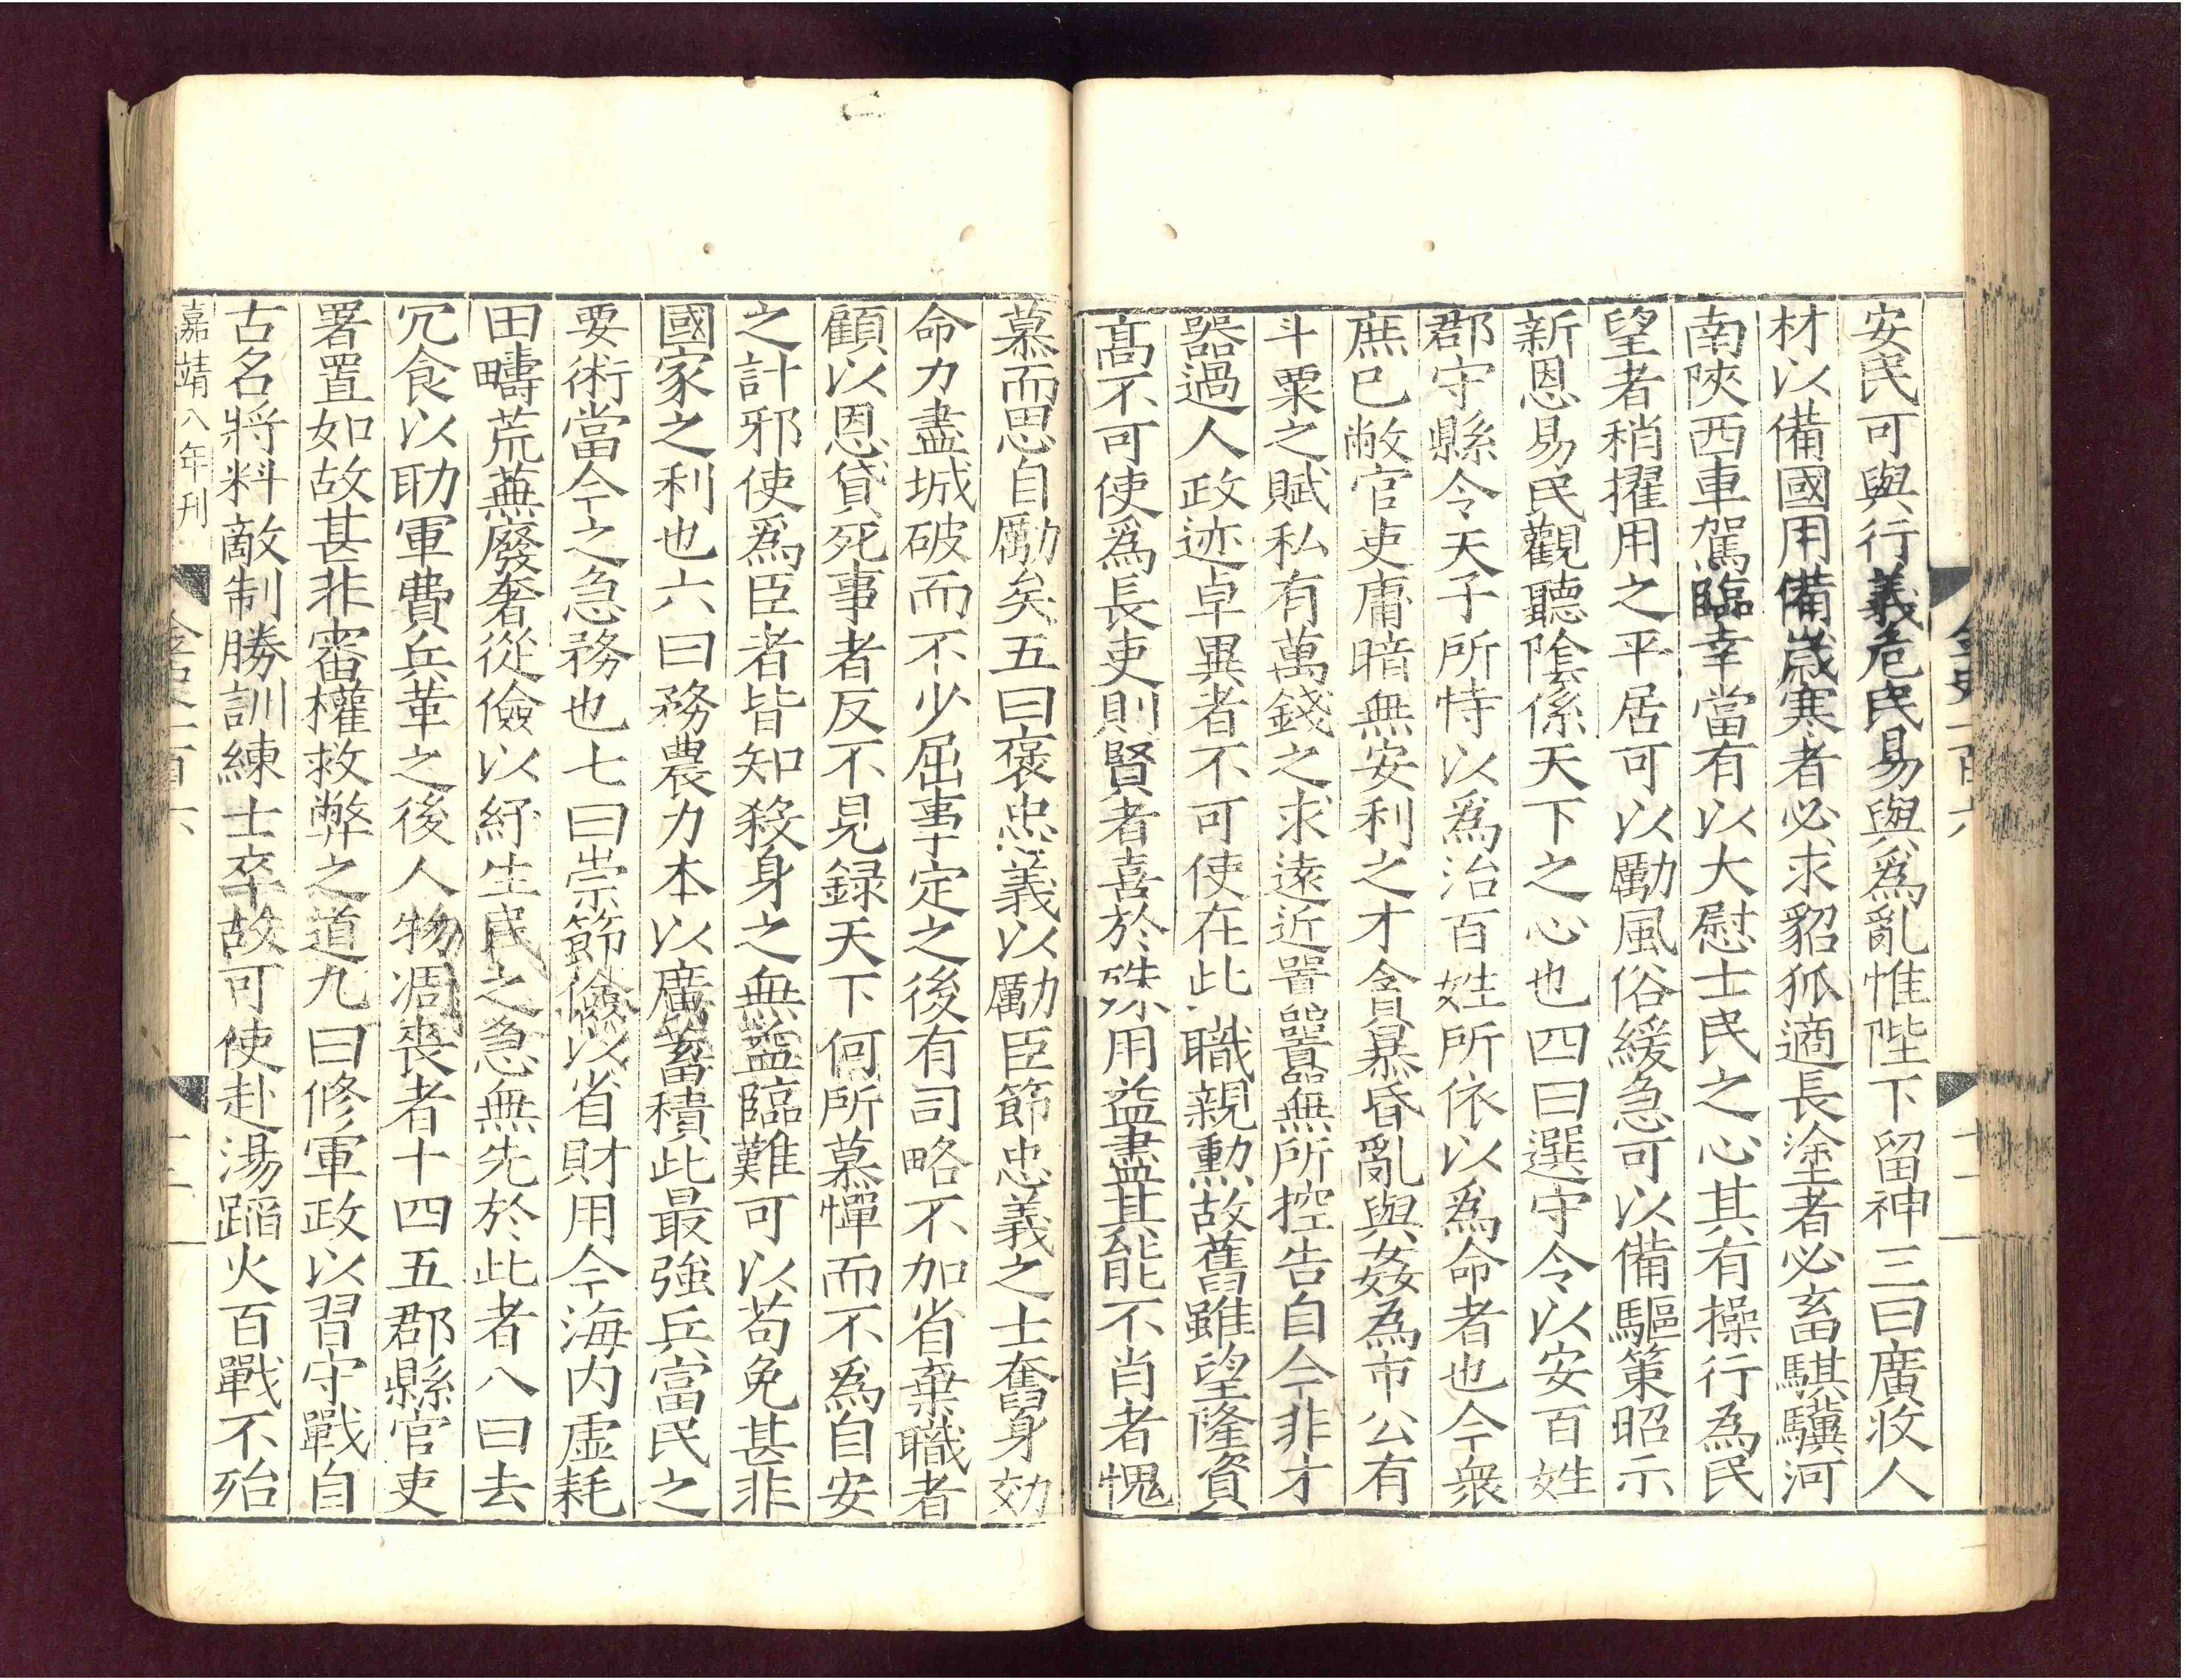 安民可與行義危民易與爲亂惟陛下留神三曰廣收人
材以備國用備歲寒者必求貂狐適長塗者必畜騏驥河
南陜西車駕臨幸當有以大慰士民之心其有操行為民
望者稍擢用之平居可以勵風俗緩急可以備驅策昭示
新恩易民觀聽陰係天下之心也四曰選守令以安百姓
郡守縣令天子所恃以爲治百姓所依以爲命者也今衆
庶已敝官吏庸暗無安利之才貪暴昏亂與姦為市公有
斗粟之賦私有萬錢之求遠近嚻嚻無所控告自今非才
器過人政迹卓異者不可使在此職親勳故舊雖望隆資
髙不可使爲長吏則賢者喜於殊用益盡其能不肖者愧
慕而思自勵矣五曰褒忠義以勵臣節忠義之士奮身效
命力盡城破而不少屈事定之後有司略不加省棄職者
顧以恩貸死事者反不見録天下何所慕憚而不爲自安
之計邪使爲臣者皆知殺身之無益臨難可以苟免甚非
國家之利也六曰務農力本以廣蓄積此最強兵富民之
要術當今之急務也七曰崇節儉以省財用今海内虛耗
田疇荒蕪廢奢從儉以紓生民之急無先於此者八曰去
冗食以助軍費兵革之後人物凋喪者十四五郡縣官吏
署置如故甚非審權救弊之道九曰修軍政以習守戰自
古名將料敵制勝訓練士卒故可使赴湯蹈火百戰不殆
嘉靖八年刊